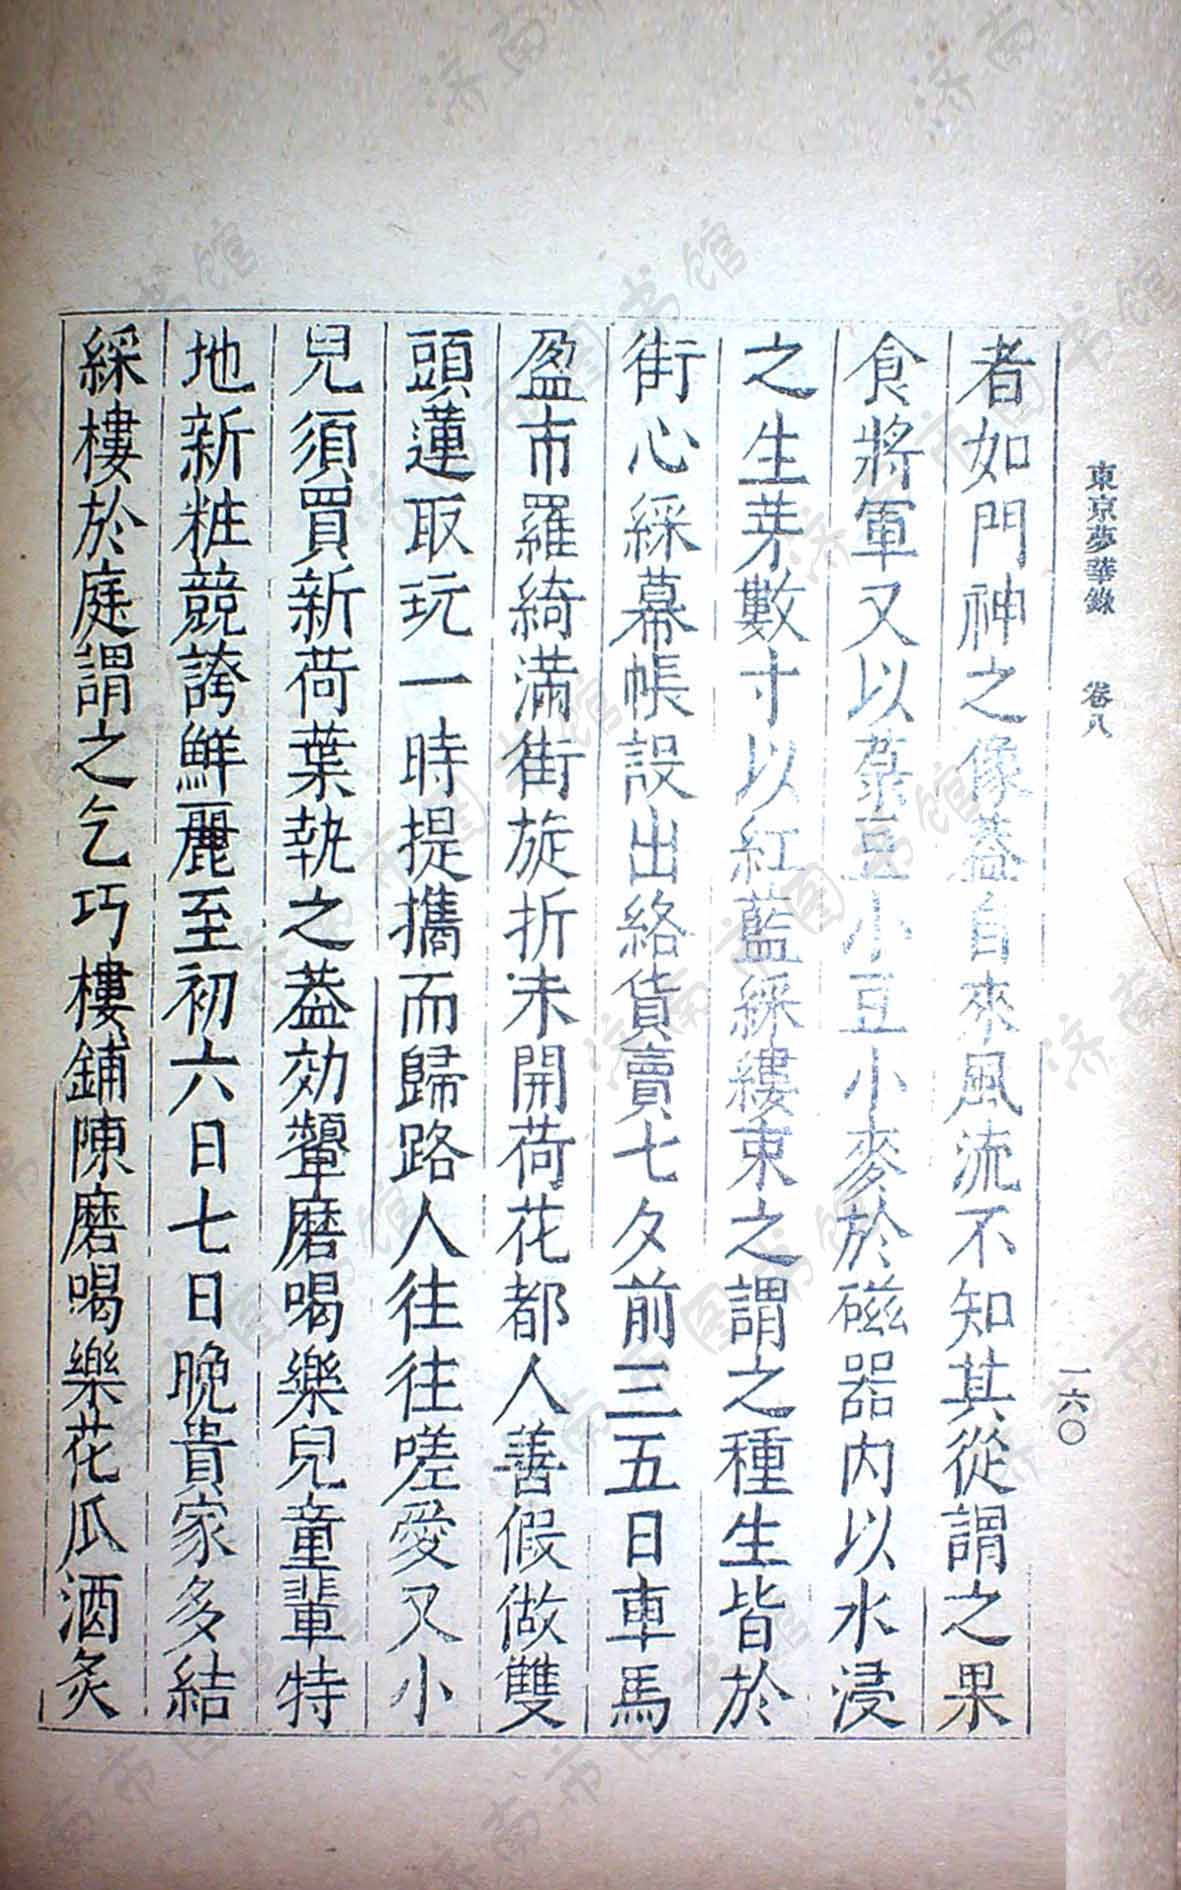 東京夢華錄 卷八
一六〇
者如門神之像蓋自來風流不知其從謂之果
食將軍又以菉豆小豆小麥於磁器內以水浸
之生芽數寸以紅藍綵縷束之謂之種生皆於
街心綵幕帳設出絡貨賣七夕前三五日車馬
盈市羅綺滿街旋折未開荷花都人善假做雙
頭蓮取玩一時提攜而歸路人往往嗟愛又小
兒須買新荷葉執之蓋効顰磨喝樂兒童輩特
地新粧競誇鮮麗至初六日七日晚貴家多結
綵樓於庭謂之乞巧樓鋪陳磨喝樂花瓜酒炙
济南市图书馆